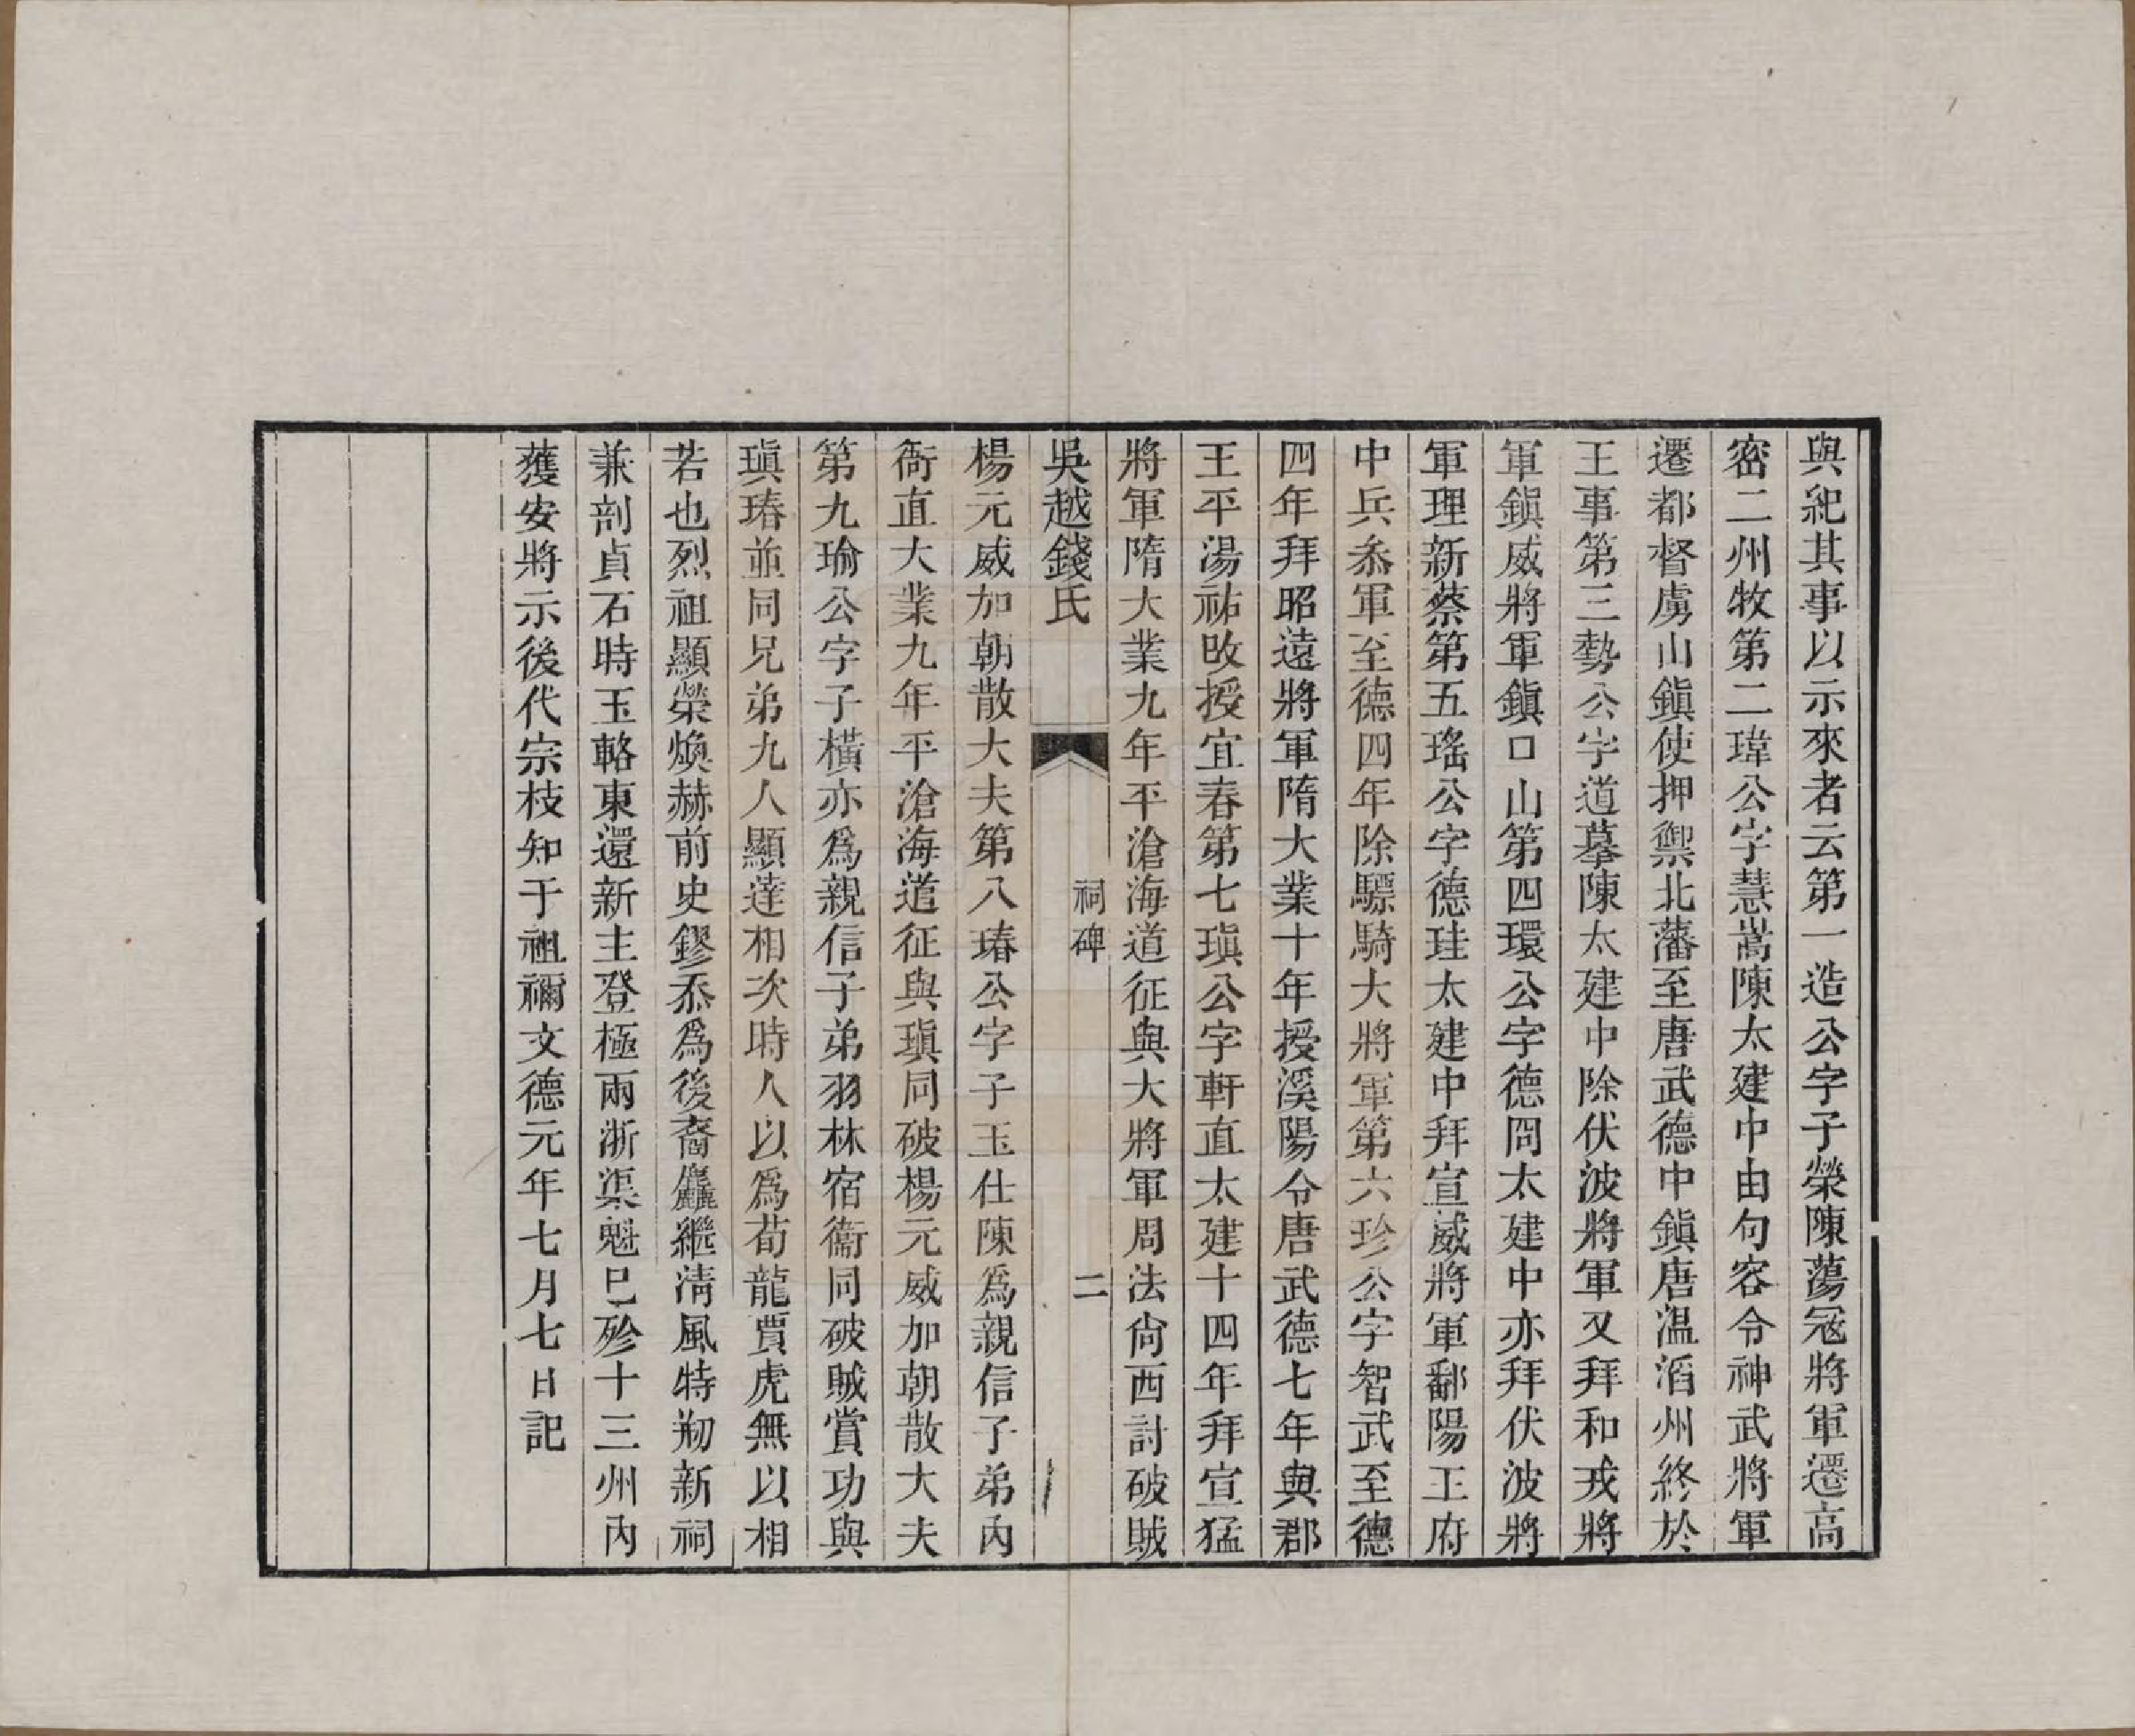 與紀其事以示來者云第一造公字子榮陳蕩寇將軍遷高
密二州牧第二瑋公字慧嵩陳太建中由句容令神武將軍
遷都督虜山鎮使押禦北藩至唐武德中鎮唐溫滔州終於
王事第三勢公字道摹陳太建中除伏波將軍又拜和戎將
軍鎮威將軍鎮口山第四環公字德冏太建中亦拜伏波將
軍理新蔡第五瑤公字德珪太建中拜宣威將軍鄱陽王府
中兵叅軍至德四年除驃騎大將軍第六珍公字智武至德
四年拜昭遠將軍隋大業十年授溪陽令唐武德七年與郡
王平湯祐攺授宜春第七瑱公字軒直太建十四年拜宣猛
將軍隋大業九年平滄海道征與大將軍周法尙西討破賊
吳越錢氏
祠碑
二
楊元威加朝散大夫第八瑃公字子玉仕陳爲親信子弟內
衙直大業九年平滄海道征與瑱同破楊元威加朝散大夫
第九瑜公字子橫亦爲親信子弟羽林宿衞同破賊賞功與
瑱瑃並同兄弟九人顯達相次時人以爲荀龍賈虎無以相
若也烈祖顯榮煥赫前史鏐忝爲後裔麤繼淸風特剏新祠
兼剖貞石時玉輅東還新主登極兩浙渠魁巳殄十三州內
獲安將示後代宗枝知于祖禰文德元年七月七日記